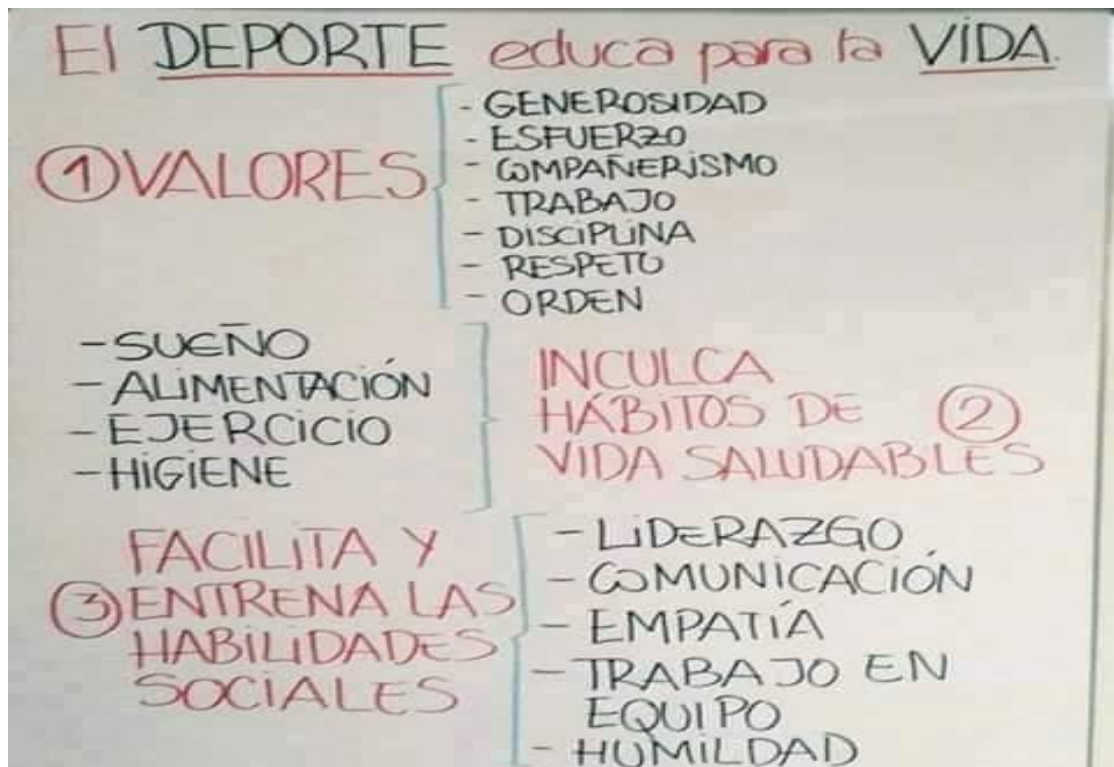 El DEPORTE educa para la VIDA.
① VALORES
- GENEROSIDAD
- ESFUERZO
- COMPAÑERISMO
- TRABAJO
- DISCIPLINA
- RESPETO
- ORDEN
- SUEÑO
- ALIMENTACIÓN
- EJERCICIO
- HIGIENE
INCULCA
HÁBITOS DE ②
VIDA SALUDABLES
FACILITA Y
③ ENTRENA LAS
HABILIDADES
SOCIALES
- LIDERAZGO
- COMUNICACIÓN
- EMPATÍA
- TRABAJO EN
EQUIPO
- HUMILDAD